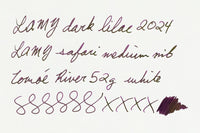 LAMY dark lilac 2024
LAMY safari medium nib
Tomoé River 52g white